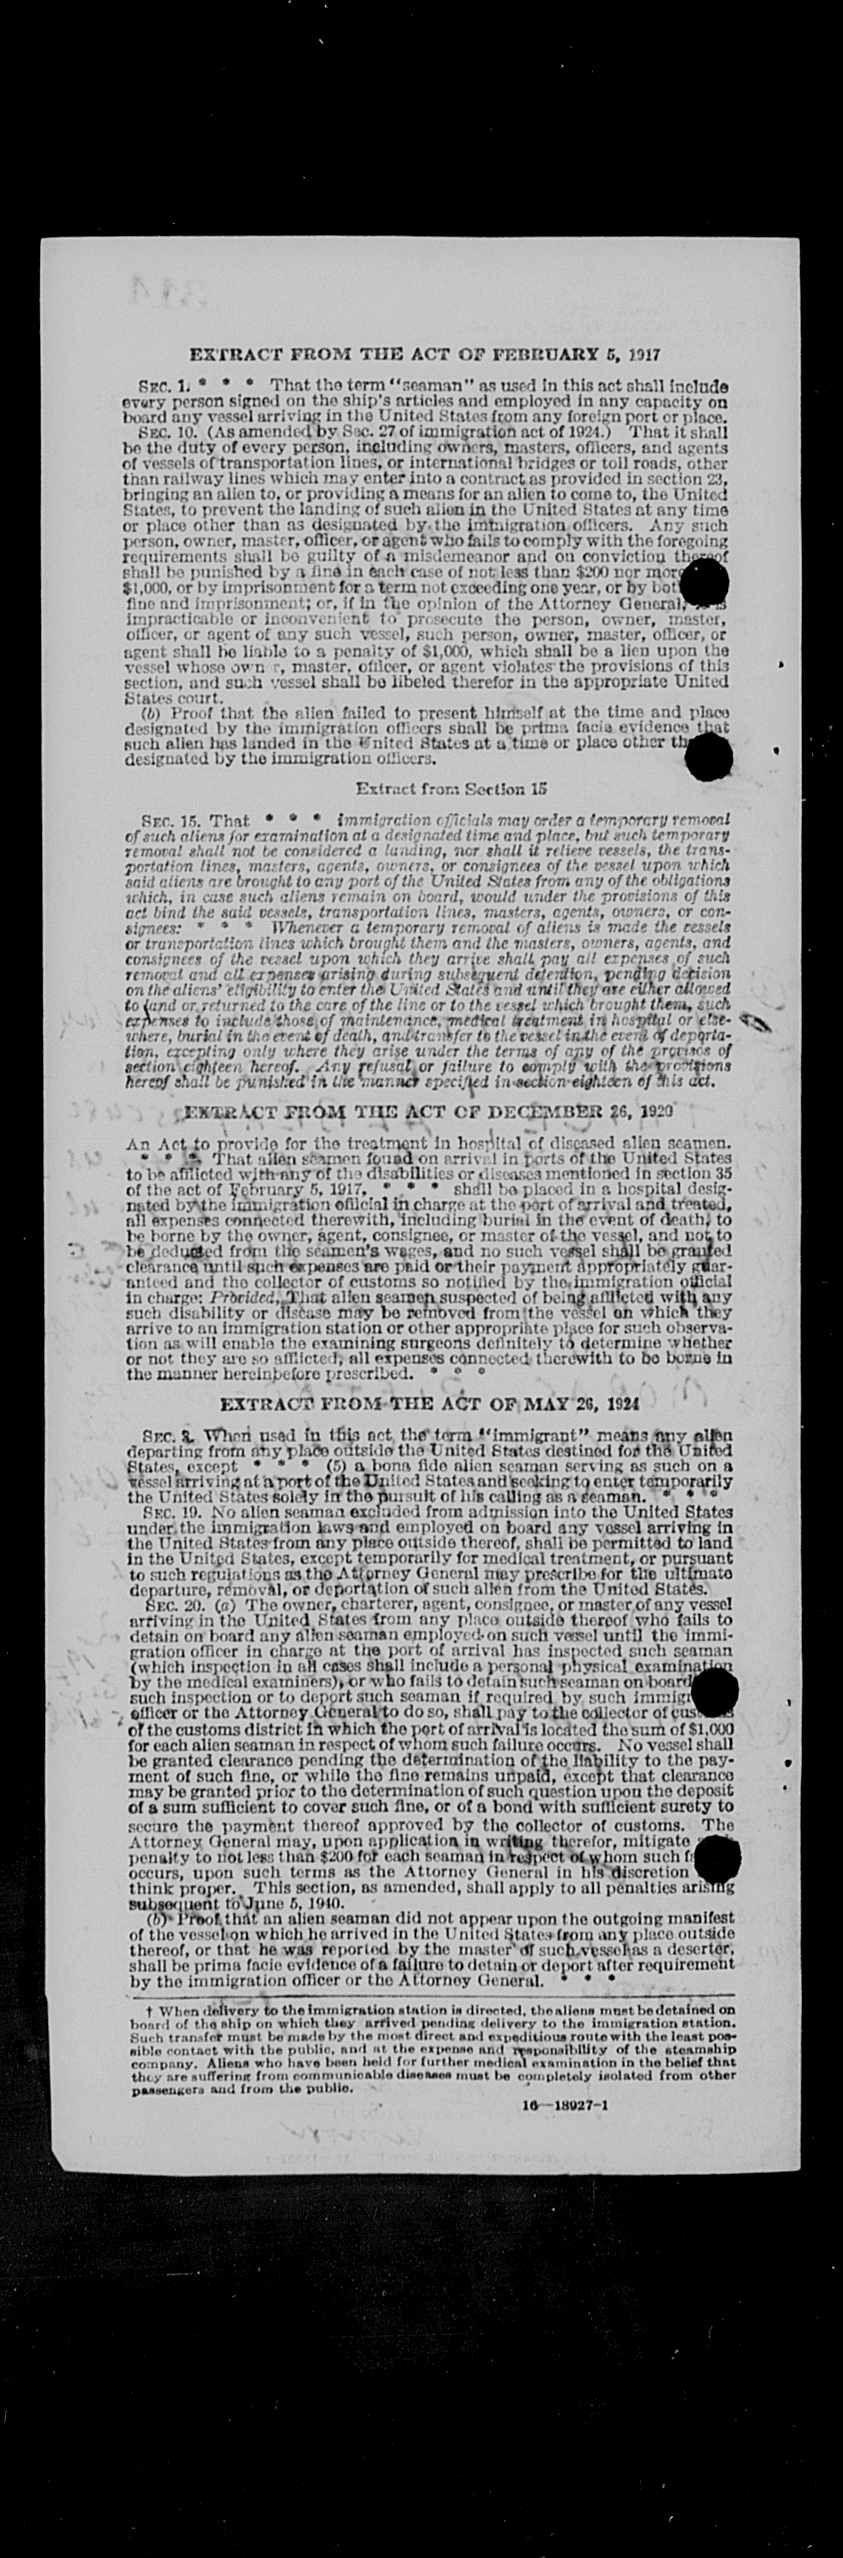 EXTRACT FROM THE ACT OF FEBRUARY 5, 1917
SEC. 1. * * * That the term "seaman" as used in this act shall include
every person signed on the ship's articles and employed in any capacity on
board any vessel arriving in the United States from any foreign port or place.
SEC. 10. (As amended by Sec. 27 of immigration act of 1924.) That it shall
be the duty of every person, including owners, masters, officers, and agents
of vessels of transportation lines, or international bridges or toll roads, other
than railway lines which may enter into a contract as provided in section 23,
bringing an alien to, or providing a means for an alien to come to, the United
States, to prevent the landing of such alien in the United States at any time
or place other than as designated by the immigration officers. Any such
person, owner, master, officer, or agent who fails to comply with the foregoing
requirements shall be guilty of a misdemeanor and on conviction thereof
shall be punished by a fine in each case of not less than $200 nor more
$1,000, or by imprisonment for a term not exceeding one year, or by bot
fine and imprisonment; or, if in the opinion of the Attorney General, is
impracticable or inconvenient to prosecute the person, owner, master,
officer, or agent of any such vessel, such person, owner, master, officer, or
agent shall be liable to a penalty of $1,000, which shall be a lien upon the
vessel whose own r, master, officer, or agent violates the provisions of this
section, and such vessel shall be libeled therefor in the appropriate United
States court.
(b) Proof that the alien failed to present himself at the time and place
designated by the immigration officers shall be prima facia evidence that
such alien has landed in the United States at a time or place other th
designated by the immigration officers.
Extract from Section 15
SEC. 15. That * * * immigration officials may order a temporary removal
of such aliens for examination at a designated time and place, but such temporary
removal shall not be considered a landing, nor shall it relieve vessels, the trans-
portation lines, masters, agents, owners, or consignees of the vessel upon which
said aliens are brought to any port of the United States from any of the obligations
which, in case such aliens remain on board, would under the provisions of this
act bind the said vessels, transportation lines, masters, agents, owners, or con-
signees: * * * Whenever a temporary removal of aliens is made the vessels
or transportation lines which brought them and the masters, owners, agents, and
consignees of the vessel upon which they arrive shall pay all expenses of such
removal and all expenses arising during subsequent detention, pending decision
on the aliens' eligibility to enter the United States and until they are either allowed
to land or returned to the care of the line or to the vessel which brought them, such
expenses to include those of maintenance, medical treatment in hospital or else-
where, burial in the event of death, and transfer to the vessel in the event of deporta-
tion, excepting only where they arise under the terms of any of the provisos of
section eighteen hereof. Any refusal or failure to comply with the provisions
hereof shall be punished in the manner specified in section eighteen of this act.
EXTRACT FROM THE ACT OF DECEMBER 26, 1920
An Act to provide for the treatment in hospital of diseased alien seamen.
* * * That alien seamen found on arrival in ports of the United States
to be afflicted with any of the disabilities or diseases mentioned in section 35
of the act of February 5, 1917, * * * shall be placed in a hospital desig-
nated by the immigration official in charge at the port of arrival and treated,
all expenses connected therewith, including burial in the event of death, to
be borne by the owner, agent, consignee, or master of the vessel, and not to
be deducted from the seamen's wages, and no such vessel shall be granted
clearance until such expenses are paid or their payment appropriately guar-
anteed and the collector of customs so notified by the immigration official
in charge: Provided, That alien seamen suspected of being afflicted with any
such disability or disease may be removed from the vessel on which they
arrive to an immigration station or other appropriate place for such observa-
tion as will enable the examining surgeons definitely to determine whether
or not they are so afflicted, all expenses connected therewith to be borne in
the manner hereinbefore prescribed. * * *
EXTRACT FROM THE ACT OF MAY 26, 1924
SEC. 3. When used in this act the term "immigrant" means any alien
departing from any place outside the United States destined for the United
States, except * * * (5) a bona fide alien seaman serving as such on a
vessel arriving at a port of the United States and seeking to enter temporarily
the United States solely in the pursuit of his calling as a seaman. * * *
SEC. 19. No alien seaman excluded from admission into the United States
under the immigration laws and employed on board any vessel arriving in
the United States from any place outside thereof, shall be permitted to land
in the United States, except temporarily for medical treatment, or pursuant
to such regulations as the Attorney General may prescribe for the ultimate
departure, removal, or deportation of such alien from the United States.
SEC. 20. (a) The owner, charterer, agent, consignee, or master of any vessel
arriving in the United States from any place outside thereof who fails to
detain on board any alien seaman employed on such vessel until the immi-
gration officer in charge at the port of arrival has inspected such seaman
(which inspection in all cases shall include a personal physical examination
by the medical examiners), or who fails to detain such seaman on board
such inspection or to deport such seaman if required by such immigr
officer or the Attorney General to do so, shall pay to the collector of customs
of the customs district in which the port of arrival is located the sum of $1,000
for each alien seaman in respect of whom such failure occurs. No vessel shall
be granted clearance pending the determination of the liability to the pay-
ment of such fine, or while the fine remains unpaid, except that clearance
may be granted prior to the determination of such question upon the deposit
of a sum sufficient to cover such fine, or of a bond with sufficient surety to
secure the payment thereof approved by the collector of customs. The
Attorney General may, upon application in writing therefor, mitigate
penalty to not less than $200 for each seaman in respect of whom such f
occurs, upon such terms as the Attorney General in his discretion
think proper. This section, as amended, shall apply to all penalties arising
subsequent to June 5, 1940.
(b) Proof that an alien seaman did not appear upon the outgoing manifest
of the vessel on which he arrived in the United States from any place outside
thereof, or that he was reported by the master of such vessel as a deserter,
shall be prima facie evidence of a failure to detain or deport after requirement
by the immigration officer or the Attorney General. * * *
† When delivery to the immigration station is directed, the aliens must be detained on
board of the ship on which they arrived pending delivery to the immigration station.
Such transfer must be made by the most direct and expeditious route with the least pos-
sible contact with the public, and at the expense and responsibility of the steamship
company. Aliens who have been held for further medical examination in the belief that
they are suffering from communicable diseases must be completely isolated from other
passengers and from the public.
16—18927-1